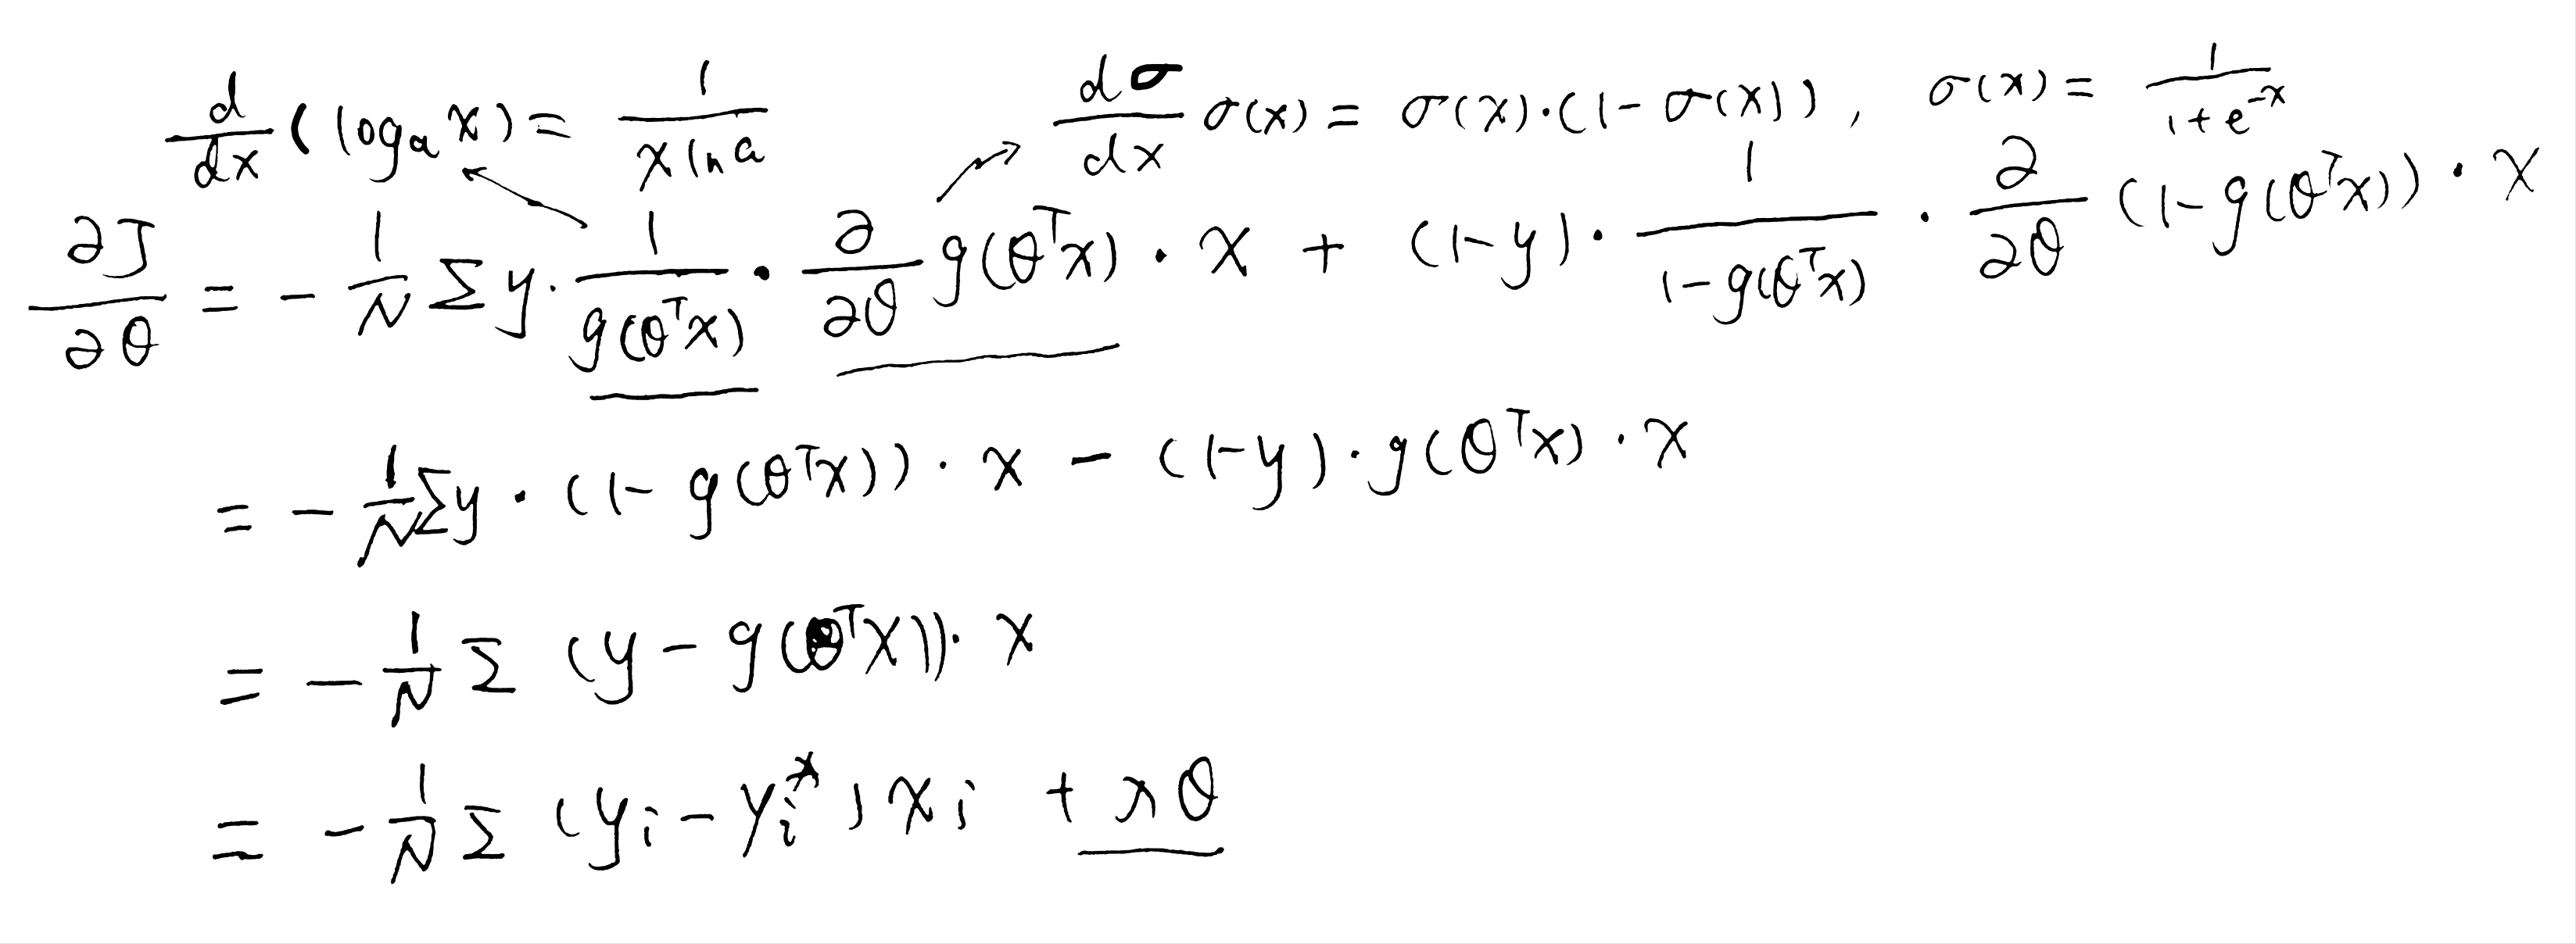 d/dx (log_a x) = 1/(x ln a)    dσ/dx σ(x) = σ(x)·(1-σ(x)), σ(x) = 1/(1+e^{-x})
∂J/∂θ = - 1/N Σ y· 1/g(θ^T x) · ∂/∂θ g(θ^T x) · x + (1-y) · 1/(1-g(θ^T x)) · ∂/∂θ (1-g(θ^T x)) · x
= - 1/N Σ y · (1- g(θ^T x)) · x - (1-y) · g(θ^T x) · x
= - 1/N Σ (y - g(θ^T x)) · x
= - 1/N Σ (y_i - y_i^*) x_i + λθ